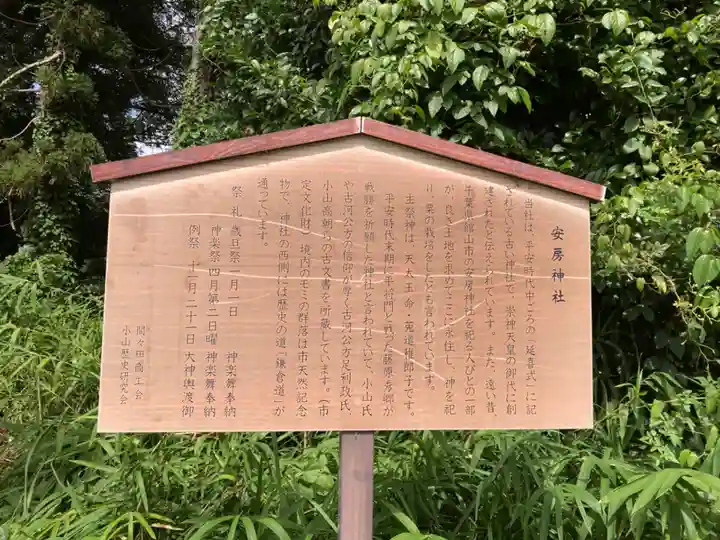 安房神社
当社は、平安時代中ごろの「延喜式」に記
されている古い神社で、崇神天皇の御代に創
建されたと伝えられています。また、遠い昔、
千葉県館山市の安房神社を祀る人びとの一部
が、良い土地を求めてここに永住し、神を祀
り、粟の栽培をしたとも言われています。
主祭神は、天太玉命・莵道稚郎子です。
平安時代末期に平将門と戦った藤原秀郷が
戦勝を祈願した神社と言われていて、小山氏
や古河公方の信仰が厚く古河公方足利政氏、
小山高朝らの古文書を所蔵しています。(市
定文化財)境内のモミの群落は市天然記念
物で、神社の西側には歴史の道「鎌倉道」が
通っています。
祭礼 歳旦祭 一月一日 神楽舞奉納
神楽祭 四月第二日曜 神楽舞奉納
例祭 十一月二十一日 大神輿渡御
間々田商工会
小山歴史研究会